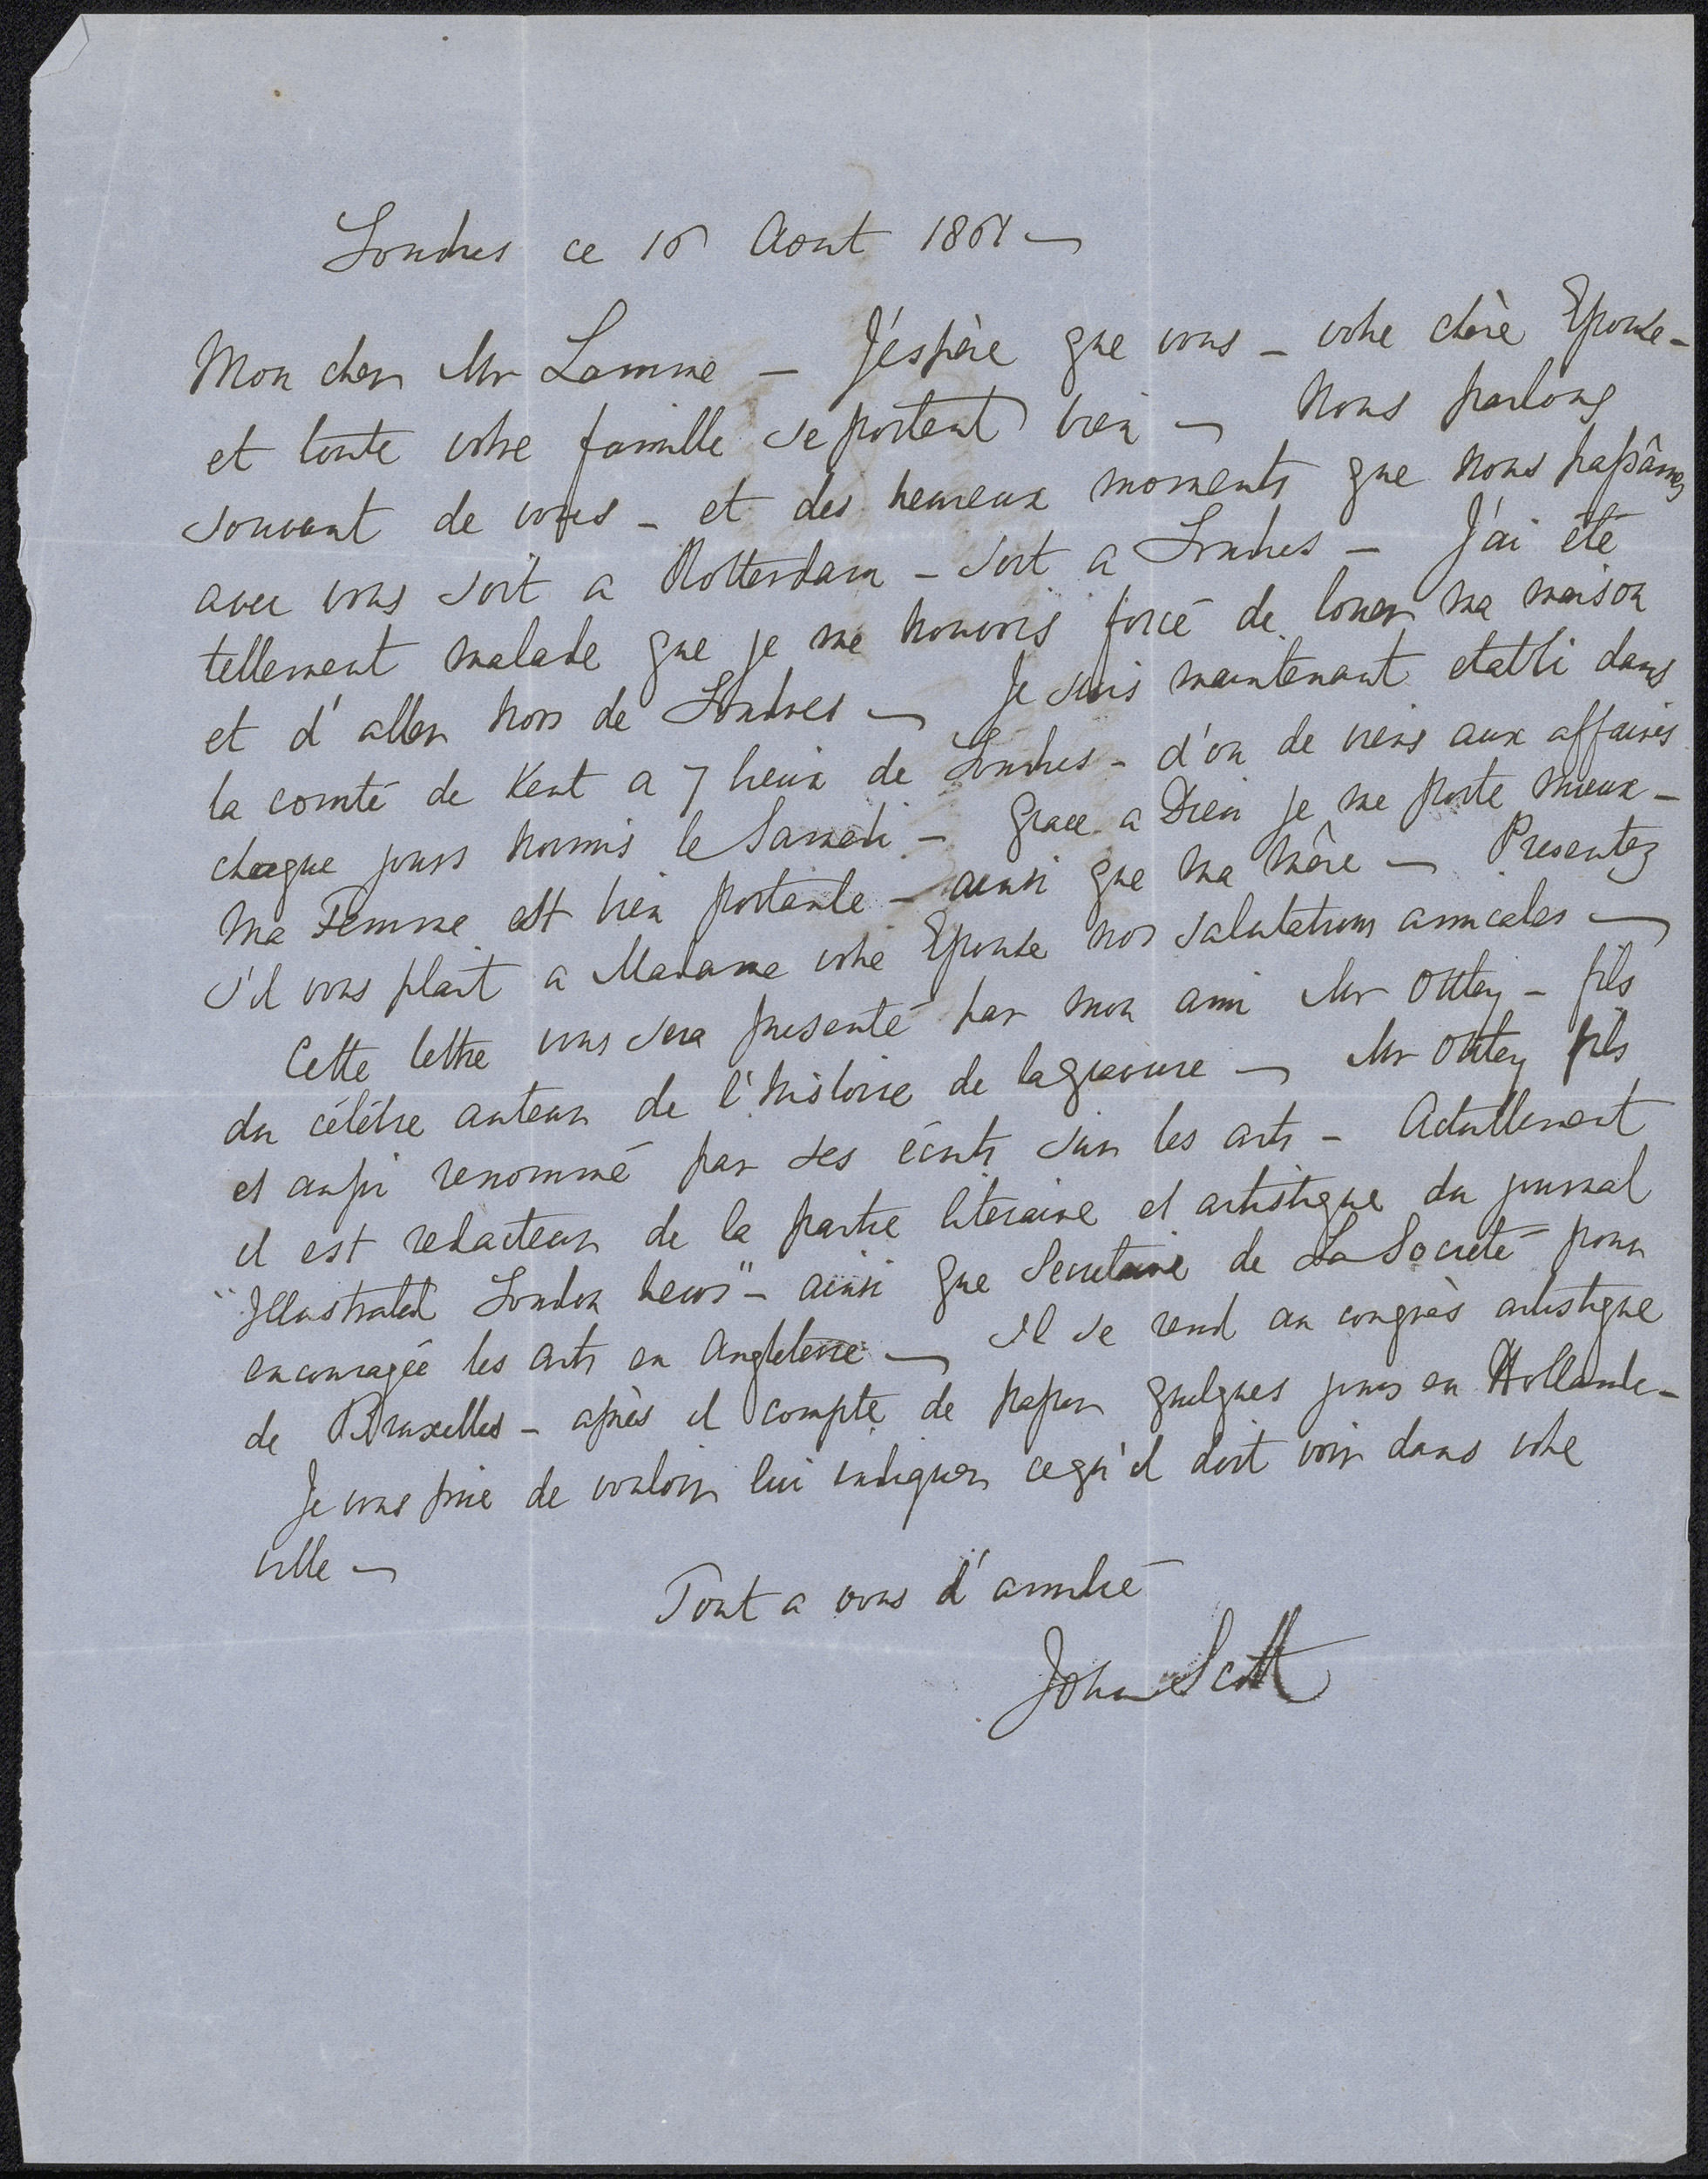 Londres ce 16 Aout 1861 —
Mon cher Mr Lamme — J'éspère que vous – votre chère Epouse –
et toute votre famille se portent bien — Nous parlons
souvant de vous – et des heureux moments que nous passâmes
avec vous soit a Rotterdam – soit a Londres – J'ai été
tellement malade que je me trouvais forcé de louer ma maison
et d'aller hors de Londres — Je suis maintenant etabli dans
la comté de Kent a 7 lieux de Londres – d'ou je viens aux affaires
chaque jours hormis le Samedi – Grace a Dieu je me porte mieux –
Ma Femme est bien portante – ainsi que ma mère — Presentez
s'il vous plait a Madame votre Epouse nos salutations amicales —
Cette lettre vous sera presenté par mon ami Mr Ottley – fils
du célébre auteur de l'histoire de la gravure — Mr Ottley fils
est aussi renommé par ses écrits sur les arts – Actullement
il est redacteur de la partie literaire et artistique du journal
"Illustrated London News" – ainsi que Secretaire de La Societé pour
encouragée les arts en Angleterre — Il se rend au congrès artistique
de Bruxelles – après il compte de passer quelques jours en Hollande –
Je vous prie de vouloir lui indiquer ce qu'il doit voir dans votre
ville —
Tout a vous d'amitié
John Scott